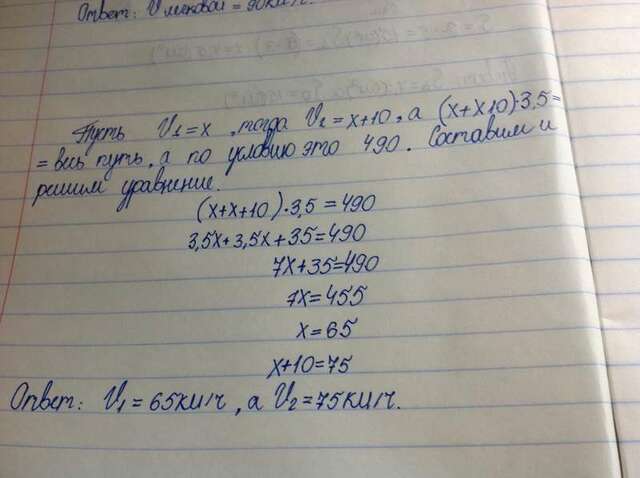 Ответ: V легковой = 90км/ч.
Пусть V₁=x, тогда V₂=x+10, а (x+x10)·3,5=
= весь путь, а по условию это 490. Составим и
решим уравнение.
(x+x+10)·3,5=490
3,5x+3,5x+35=490
7x+35=490
7x=455
x=65
x+10=75
Ответ: V₁=65км/ч, а V₂=75км/ч.